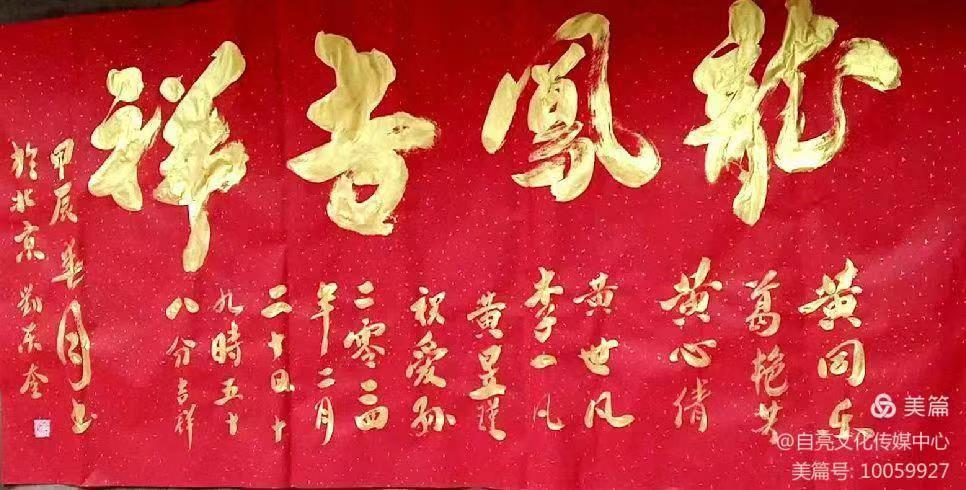 龍鳳吉祥
黄同乐
葛艳芳
黄心倩
黄世凡
李一凡
黄昱瑾
祝爱孙
二零二四
年二月
二十四十
九時五十
八分吉祥
甲辰年月书
於北京刘东奎
美篇
@自亮文化传媒中心
美篇号: 10059927